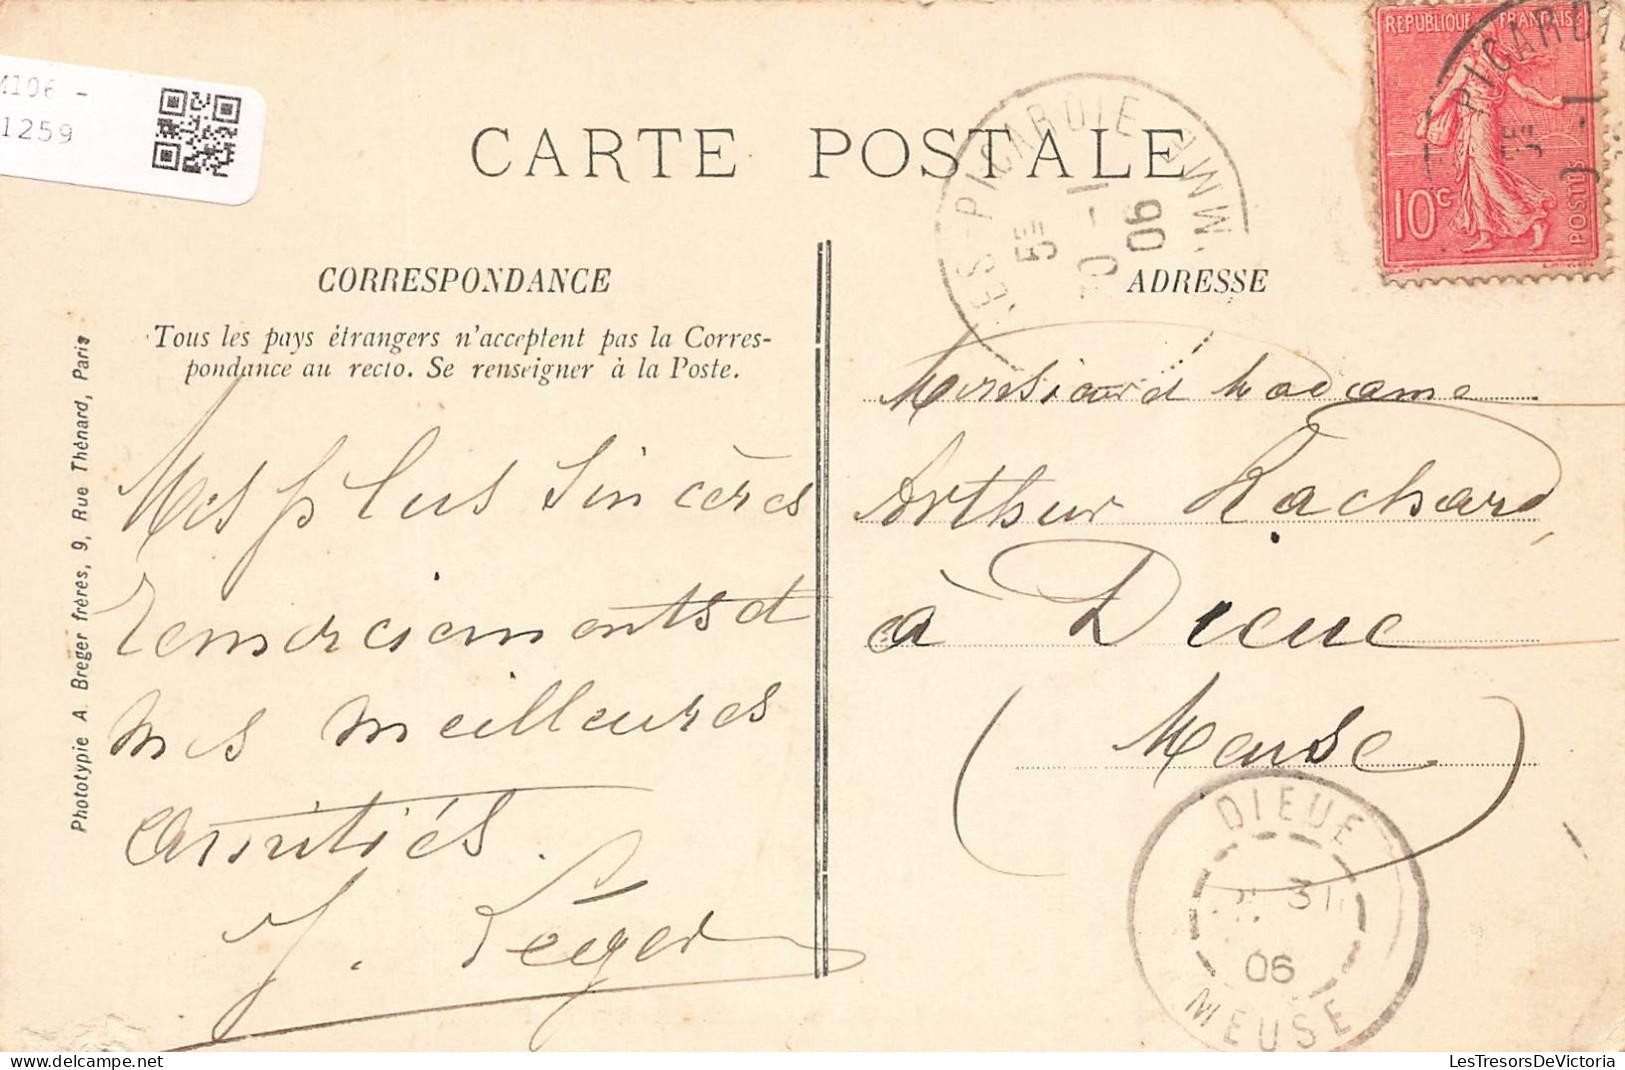 M106 -
1259
CARTE POSTALE
REPUBLIQUE FRANÇAISE
10c
POSTES
PICARDIE
5E
PICARDIE
5E
-1
06
CORRESPONDANCE
ADRESSE
Tous les pays étrangers n'acceptent pas la Corres-
pondance au recto. Se renseigner à la Poste.
Phototypie A. Breger frères, 9, Rue Thénard, Paris
Mes plus sincères
remerciements et
mes meilleures
amitiés.
J. Léger
Monsieur et Madame
Arthur Rachard
à Dieue
(Meuse)
DIEUE
31
06
MEUSE
LesTresorsDeVictoria